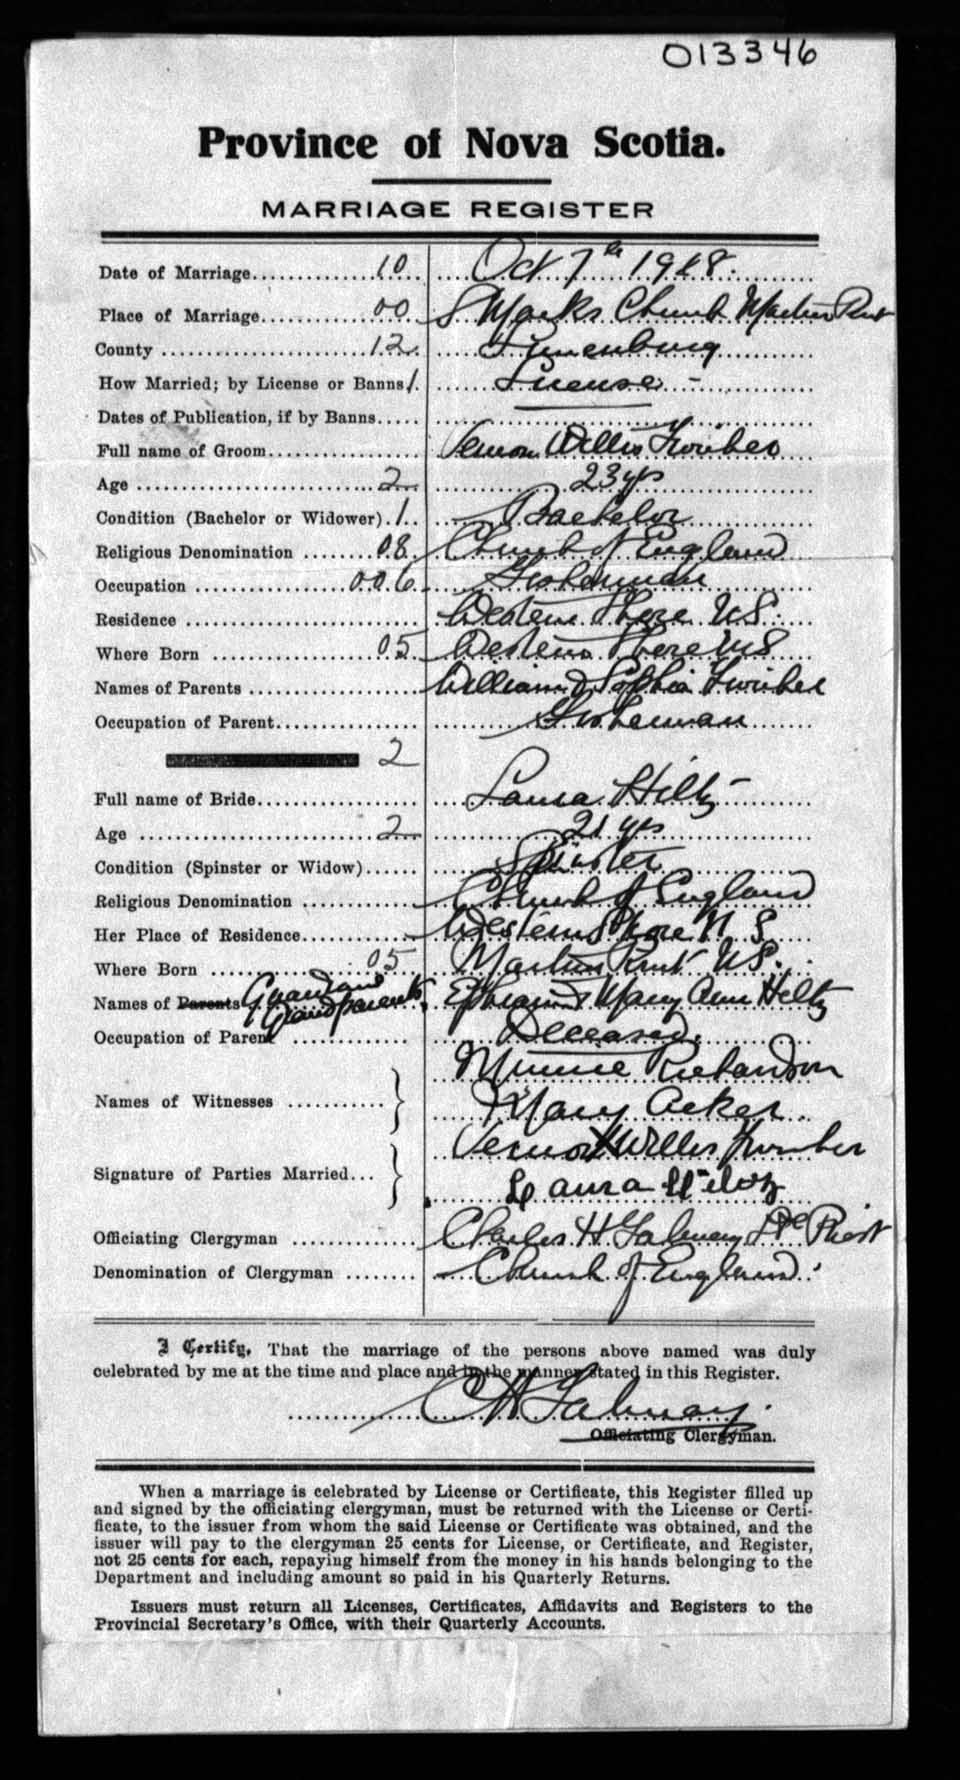 013346
Province of Nova Scotia.
MARRIAGE REGISTER
Date of Marriage 10 Oct 7th 1918.
Place of Marriage 00 S Marks Church Martins
County 12 Lunenburg
How Married; by License or Banns 1 License
Dates of Publication, if by Banns
Full name of Groom Vernon Willis
Age 2 23 yrs
Condition (Bachelor or Widower) 1 Bachelor
Religious Denomination 08 Church of England
Occupation 006 Fisherman
Residence Western Shore N S.
Where Born 05 Western Shore N S
Names of Parents William & Sophia
Occupation of Parent Fisherman
2
Full name of Bride Laura Hiltz
Age 2 21 yrs
Condition (Spinster or Widow) Spinster
Religious Denomination Church of England
Her Place of Residence Western Shore N S
Where Born 05 Martins N S.
Names of Parents Grandparents Ephraim & Mary Ann Hiltz
Occupation of Parent Deceased.
Names of Witnesses Minnie Richardson
Mary Acker.
Signature of Parties Married Vernon Willis
Laura Hiltz
Officiating Clergyman Charles H Priest
Denomination of Clergyman Church of England.
I Certify, That the marriage of the persons above named was duly
celebrated by me at the time and place and in the manner stated in this Register.
C H
Officiating Clergyman.
When a marriage is celebrated by License or Certificate, this Register filled up
and signed by the officiating clergyman, must be returned with the License or Certi-
ficate, to the issuer from whom the said License or Certificate was obtained, and the
issuer will pay to the clergyman 25 cents for License, or Certificate, and Register,
not 25 cents for each, repaying himself from the money in his hands belonging to the
Department and including amount so paid in his Quarterly Returns.
Issuers must return all Licenses, Certificates, Affidavits and Registers to the
Provincial Secretary's Office, with their Quarterly Accounts.